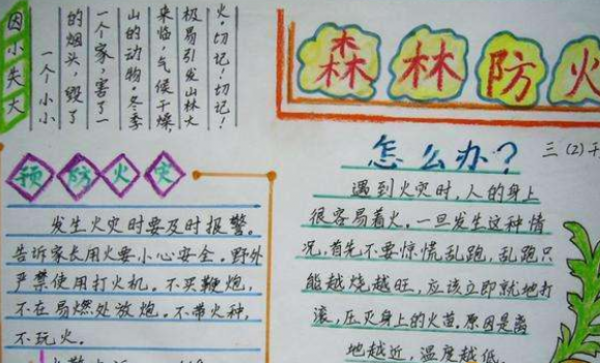 因小失大
一个小小
的烟头,毁了
一个家,害了一
山的动物。冬季
来临,气候干燥,
极易引发山林大
火。切记!切记!
森林防火
三(2)
预防火灾
发生火灾时要及时报警。
告诉家长用火要小心安全。野外
严禁使用打火机。不买鞭炮,
不在易燃处放炮。不带火种,
不玩火。
怎么办?
遇到火灾时,人的身上
很容易着火。一旦发生这种情
况,首先不要惊慌乱跑,乱跑只
能越烧越旺,应该立即就地打
滚,压灭身上的火苗。原因是离
地越近,温度越低。